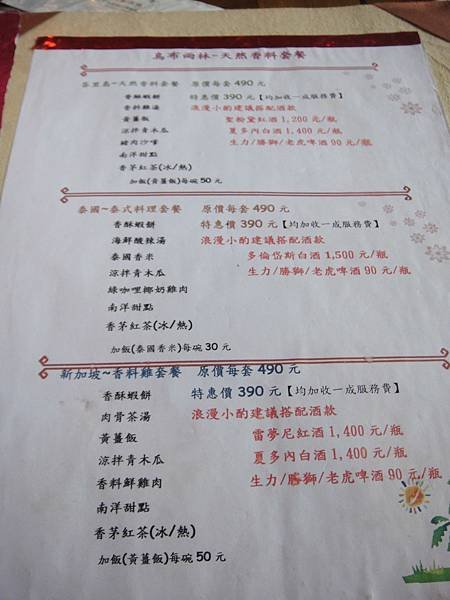 烏布雨林~天然香料套餐
峇里島~天然香料套餐 原價每套 490 元
香酥蝦餅 特惠價 390 元【均加收一成服務費】
香料雞湯 浪漫小酌建議搭配酒款
黃薑飯 聖粉黛紅酒 1,200 元/瓶
涼拌青木瓜 夏多內白酒 1,400 元/瓶
豬肉沙嗲 生力/勝獅/老虎啤酒 90 元/瓶
南洋甜點
香茅紅茶(冰/熱)
加飯(黃薑飯)每碗 50 元
泰國~泰式料理套餐 原價每套 490 元
香酥蝦餅 特惠價 390 元【均加收一成服務費】
海鮮酸辣湯 浪漫小酌建議搭配酒款
泰國香米 多倫岱斯白酒 1,500 元/瓶
涼拌青木瓜 生力/勝獅/老虎啤酒 90 元/瓶
綠咖哩椰奶雞肉
南洋甜點
香茅紅茶(冰/熱)
加飯(泰國香米)每碗 30 元
新加坡~香料雞套餐 原價每套 490 元
香酥蝦餅 特惠價 390 元【均加收一成服務費】
肉骨茶湯 浪漫小酌建議搭配酒款
黃薑飯 雷夢尼紅酒 1,400 元/瓶
涼拌青木瓜 夏多內白酒 1,400 元/瓶
香料鮮雞肉 生力/勝獅/老虎啤酒 90 元/瓶
南洋甜點
香茅紅茶(冰/熱)
加飯(黃薑飯)每碗 50 元